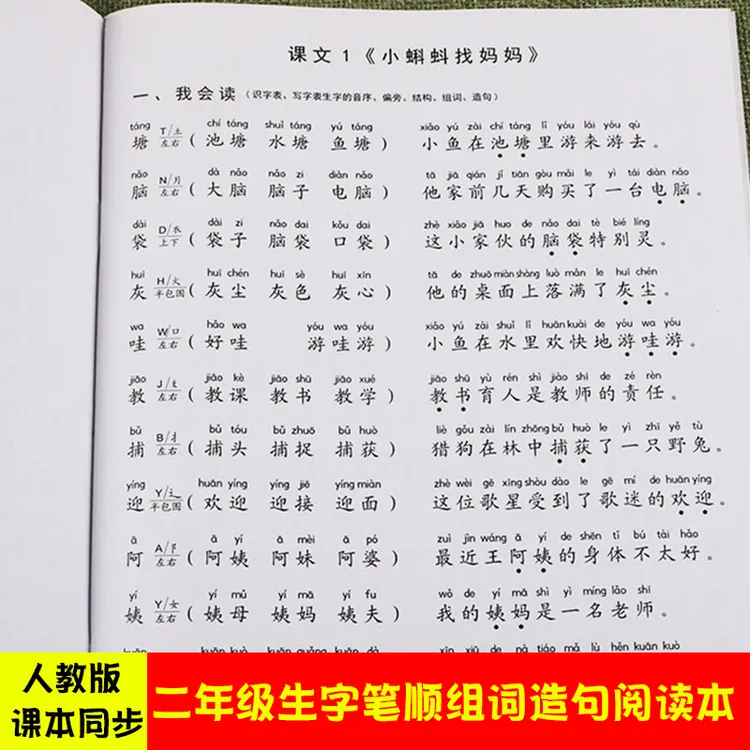 课文1《小蝌蚪找妈妈》
一、我会读（识字表、写字表生字的音序、偏旁、结构、组词、造句）
táng chí táng shuǐ táng yú táng xiǎo yú zài chí táng lǐ yóu lái yóu qù
塘 T/土 左右 ( 池塘 水塘 鱼塘 ) 小鱼在池塘里游来游去。
nǎo dà nǎo nǎo zi diàn nǎo tā jiā qián jǐ tiān gòu mǎi le yì tái diàn nǎo
脑 N/月 左右 ( 大脑 脑子 电脑 ) 他家前几天购买了一台电脑。
dài dài zi nǎo dai kǒu dai zhè xiǎo jiā huo de nǎo dai tè bié líng
袋 D/衣 上下 ( 袋子 脑袋 口袋 ) 这小家伙的脑袋特别灵。
huī huī chén huī sè huī xīn tā de zhuō miàn shàng luò mǎn le huī chén
灰 H/火 半包围 ( 灰尘 灰色 灰心 ) 他的桌面上落满了灰尘。
wa hǎo wa yóu wa yóu xiǎo yú zài shuǐ lǐ huān kuài de yóu wa yóu
哇 W/口 左右 ( 好哇 游哇游 ) 小鱼在水里欢快地游哇游。
jiāo jiāo kè jiāo shū jiāo xué jiāo shū yù rén shì jiào shī de zé rèn
教 J/攵 左右 ( 教课 教书 教学 ) 教书育人是教师的责任。
bǔ bǔ tóu bǔ zhuō bǔ huò liè gǒu zài lín zhōng bǔ huò le yì zhī yě tù
捕 B/扌 左右 ( 捕头 捕捉 捕获 ) 猎狗在林中捕获了一只野兔。
yíng huān yíng yíng jiē yíng miàn zhè wèi gē xīng shòu dào le gē mí de huān yíng
迎 Y/辶 半包围 ( 欢迎 迎接 迎面 ) 这位歌星受到了歌迷的欢迎。
ā ā yí ā mèi ā pó zuì jìn wáng ā yí de shēn tǐ bú tài hǎo
阿 A/阝 左右 ( 阿姨 阿妹 阿婆 ) 最近王阿姨的身体不太好。
yí yí mǔ yí mā yí fu wǒ de yí mā shì yì míng lǎo shī
姨 Y/女 左右 ( 姨母 姨妈 姨夫 ) 我的姨妈是一名老师。
kuān kuān kuò kuān guǎng kuān xīn xiū de nà tiáo mǎ lù hěn kuān kuò
人教版
课本同步
二年级生字笔顺组词造句阅读本